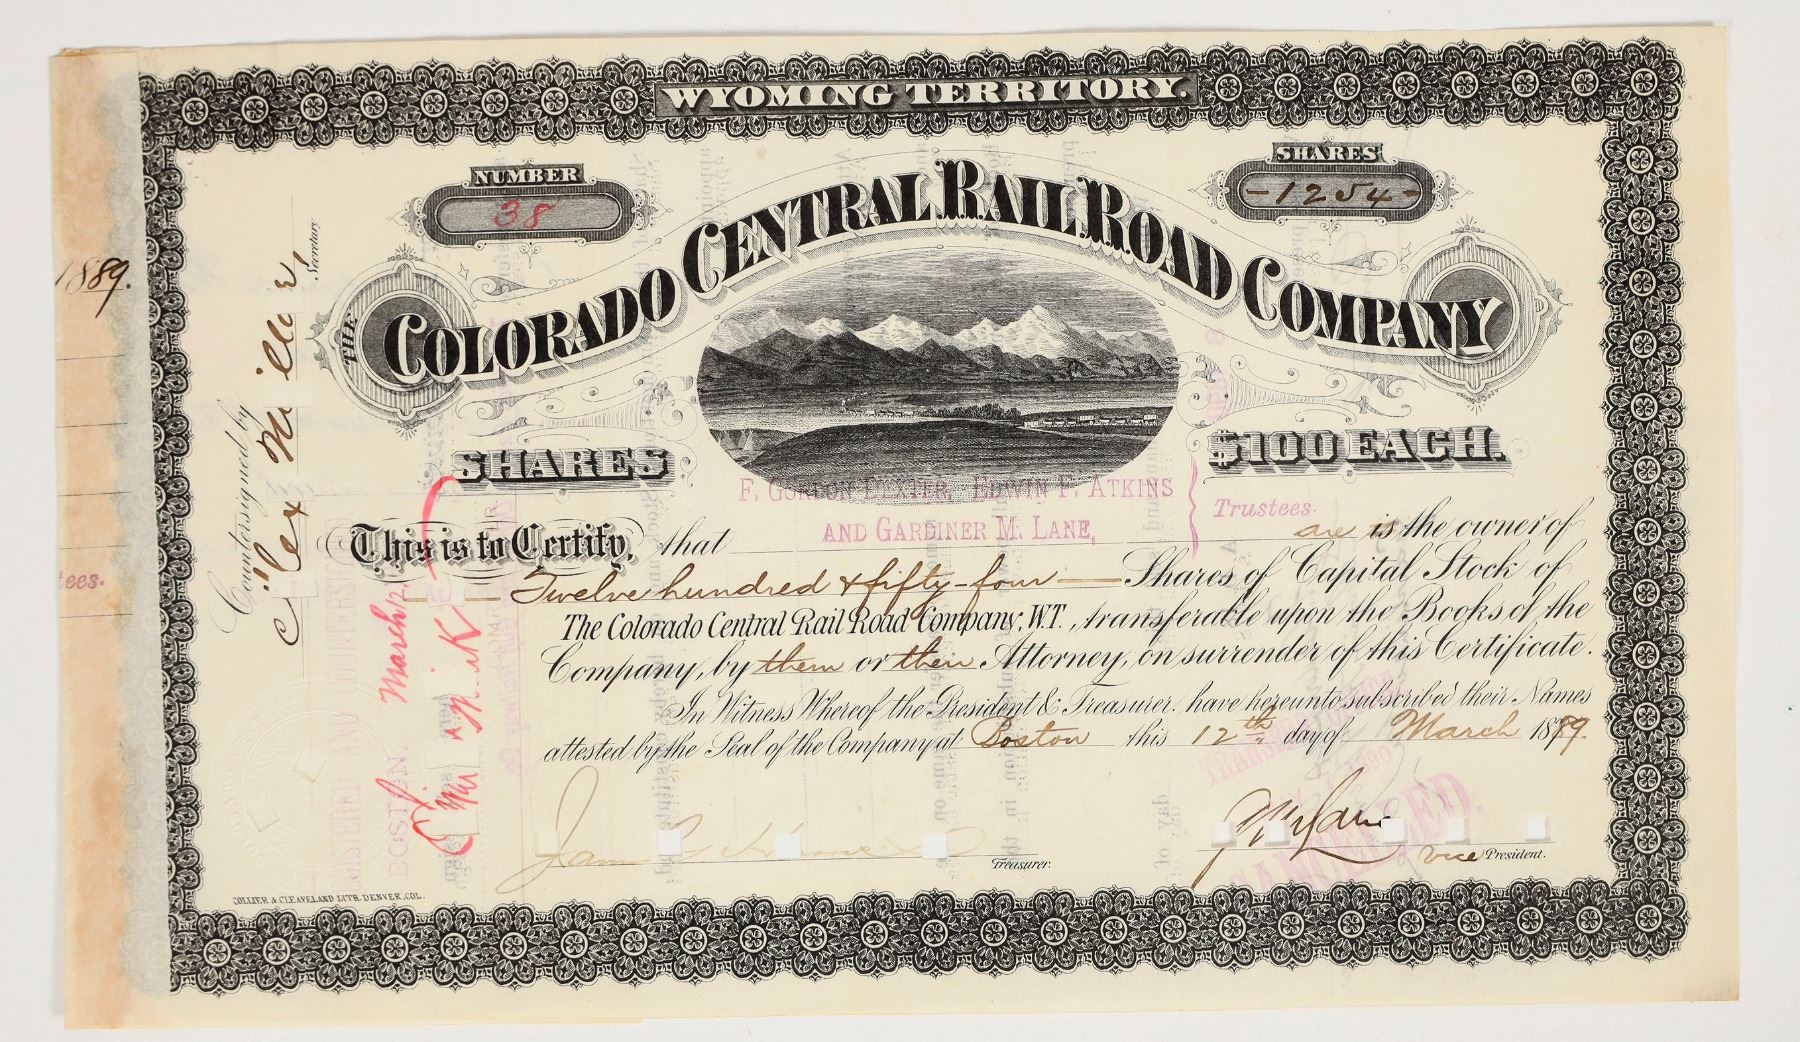 WYOMING TERRITORY.
NUMBER
38
SHARES
-1254-
THE COLORADO CENTRAL RAIL ROAD COMPANY
SHARES $100 EACH.
F. GORDON DEXTER, EDWIN F. ATKINS
AND GARDINER M. LANE,
Trustees.
This is to Certify, that are is the owner of
Twelve hundred & fifty-four Shares of Capital Stock of
The Colorado Central Rail Road Company, W.T., transferable upon the Books of the
Company, by them or their Attorney, on surrender of this Certificate.
In Witness Whereof the President & Treasurer have hereunto subscribed their Names
attested by the Seal of the Company at Boston this 12th day of March 1889.
Treasurer.
Vice President.
COLLIER & CLEAVELAND LITH. DENVER, COL.
Countersigned by
Alex Millar,
Secretary
1889.
tees.
BOSTON. March 12
CANCELLED.